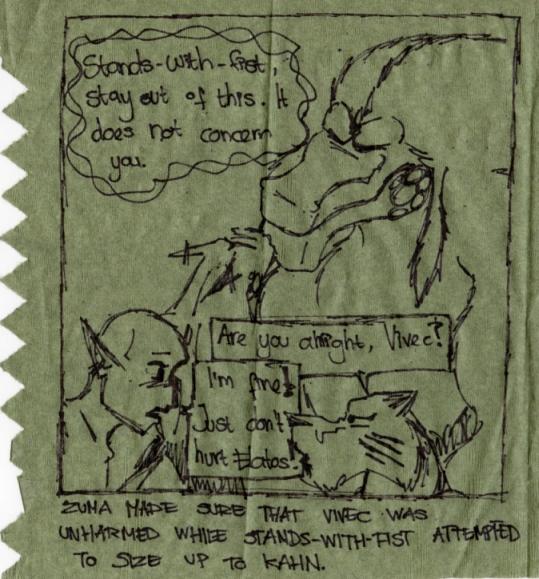 Stands-with-fist,
stay out of this. It
does not concern
you.
Are you alright, Vivec?
I'm fine!
Just don't
hurt Eatos!
ZUMA MADE SURE THAT VIVEC WAS
UNHARMED WHILE STANDS-WITH-FIST ATTEMPTED
TO SIZE UP TO KAHN.